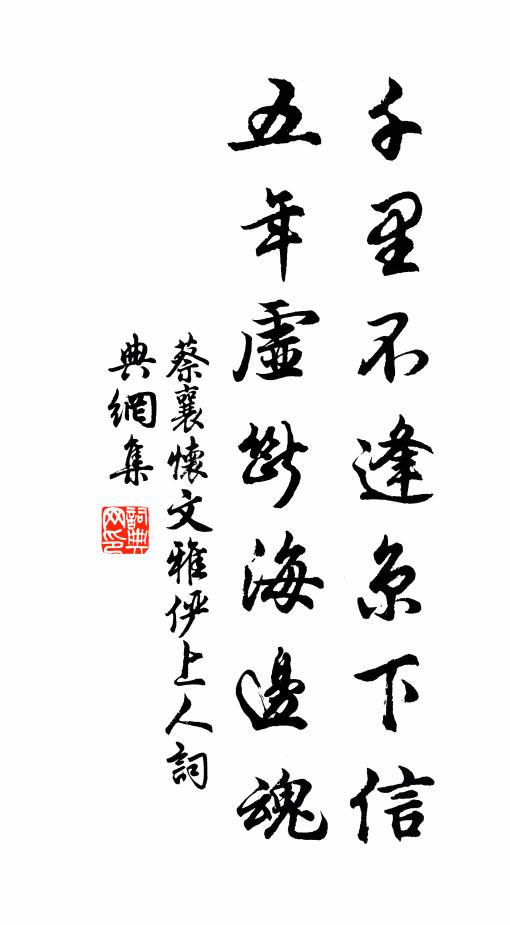 千里不逢京下信
五年虛斷海邊魂
蔡襄懷文雅儼上人詞
典網集
詞典
网印